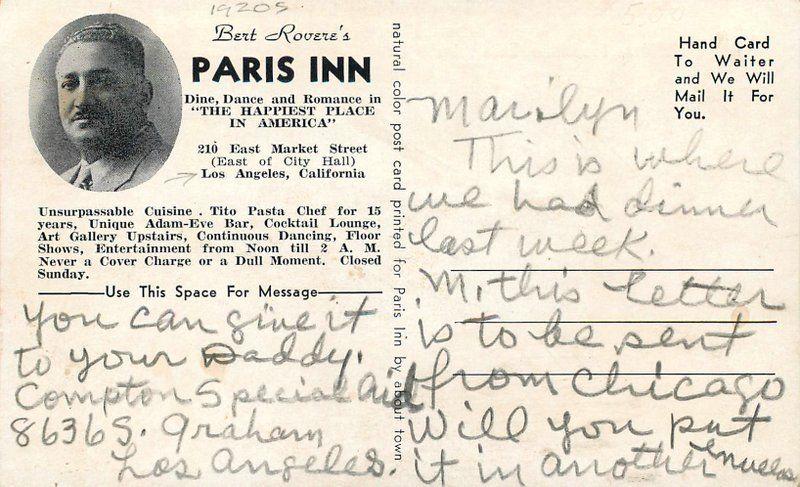 1920s
5.00
Bert Rovere's
PARIS INN
Dine, Dance and Romance in
"THE HAPPIEST PLACE
IN AMERICA"
210 East Market Street
(East of City Hall)
Los Angeles, California
Unsurpassable Cuisine . Tito Pasta Chef for 15
years, Unique Adam-Eve Bar, Cocktail Lounge,
Art Gallery Upstairs, Continuous Dancing, Floor
Shows, Entertainment from Noon till 2 A. M.
Never a Cover Charge or a Dull Moment. Closed
Sunday.
Use This Space For Message
you can give it
to your Daddy.
Compton Special Aid
8636 S. Graham
Los Angeles.
natural color post card printed for Paris Inn by about town
Hand Card
To Waiter
and We Will
Mail It For
You.
Marilyn
This is where
we had dinner
last week.
M, this letter
is to be sent
from Chicago
Will you put
it in another